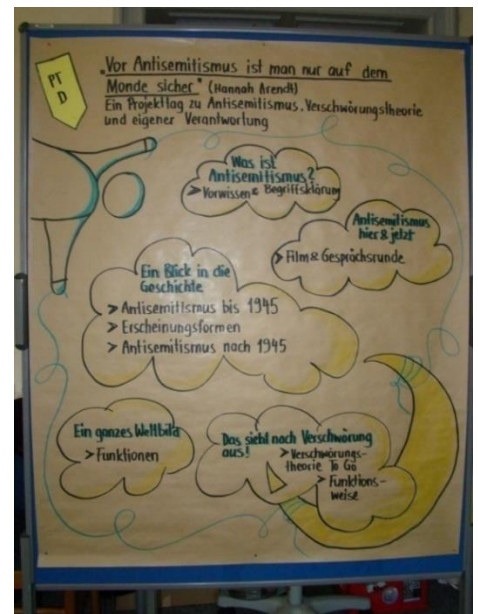 PT
D
„Vor Antisemitismus ist man nur auf dem
Monde sicher" (Hannah Arendt)
Ein Projekttag zu Antisemitismus, Verschwörungstheorie
und eigener Verantwortung
Was ist
Antisemitismus?
> Vorwissen & Begriffsklärung
Antisemitismus
hier & jetzt
> Film & Gesprächsrunde
Ein Blick in die
Geschichte
> Antisemitismus bis 1945
> Erscheinungsformen
> Antisemitismus nach 1945
Ein ganzes Weltbild
> Funktionen
Das sieht nach Verschwörung
aus!
> Verschwörungs-
theorie To Go
> Funktions-
weise